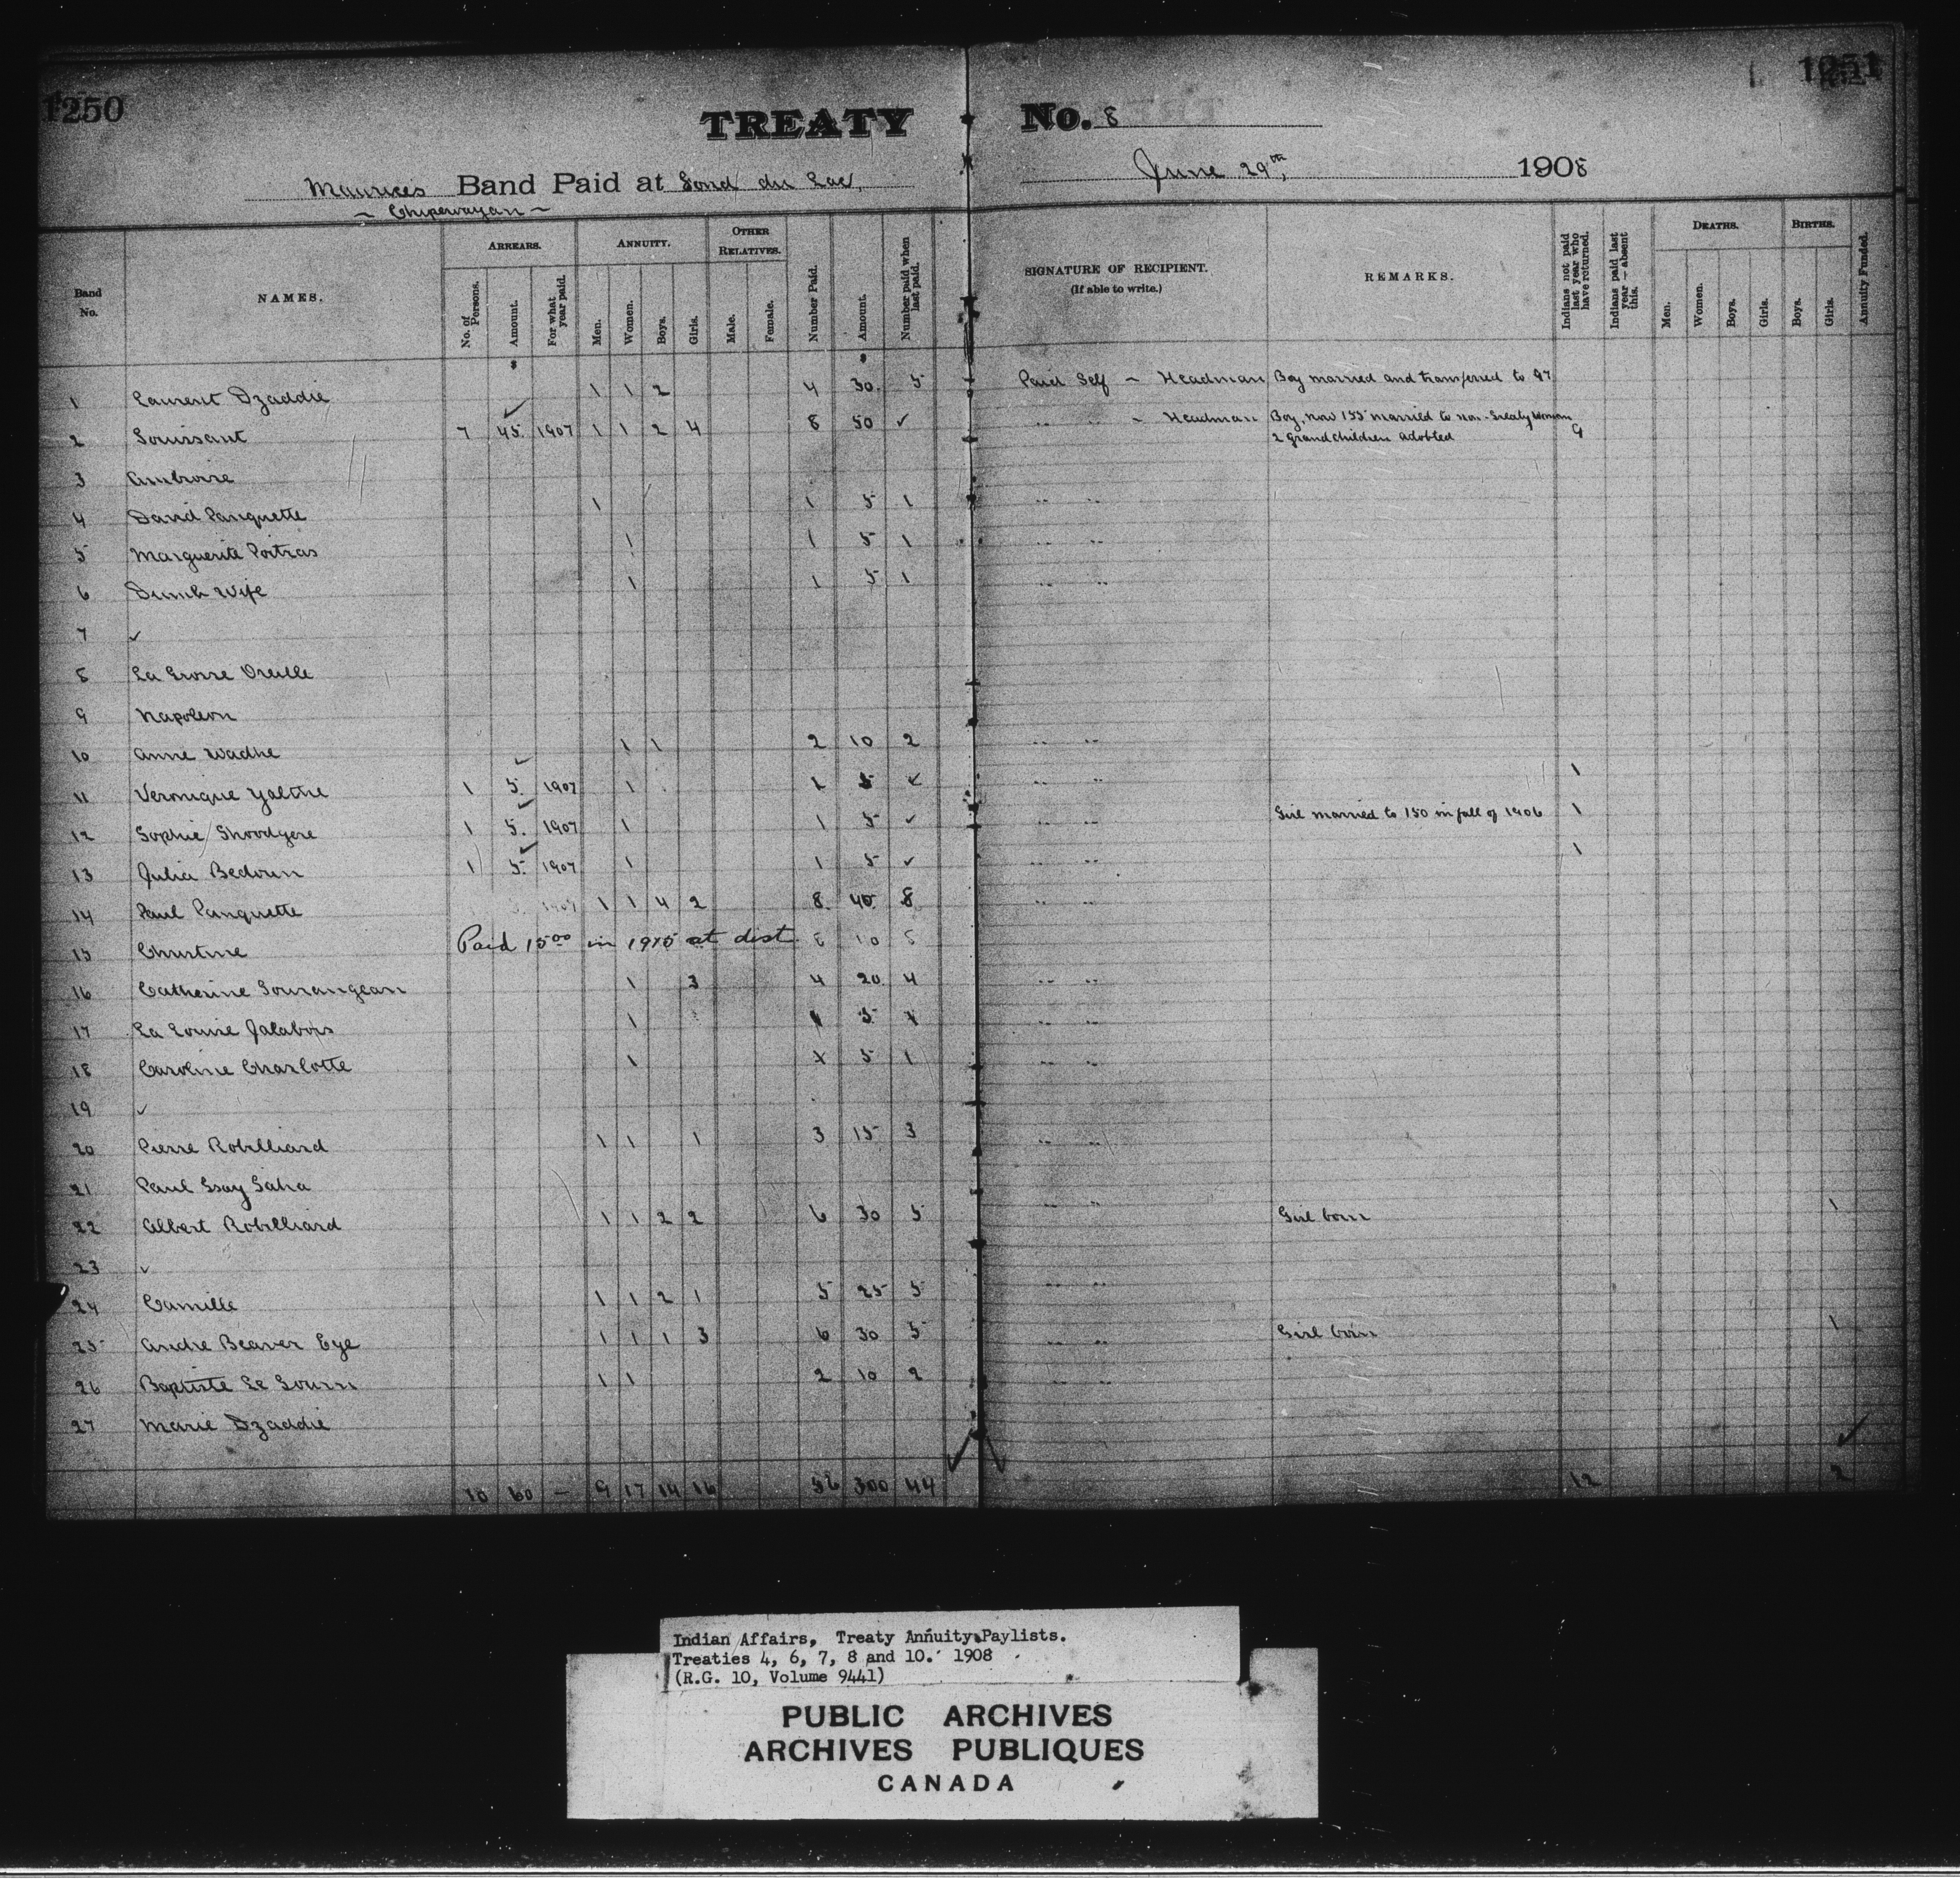 1250
1251
TREATY No. 8
Maurices Band Paid at Fond du Lac, June 29th, 1908
~ Chipewayan ~
Band No.
NAMES.
ARREARS.
No. of Persons.
Amount.
For what year paid.
ANNUITY.
Men.
Women.
Boys.
Girls.
OTHER RELATIVES.
Male.
Female.
Number Paid.
Amount.
Number paid when last paid.
SIGNATURE OF RECIPIENT.
(If able to write.)
REMARKS.
Indians not paid last year who have returned.
Indians paid last year — absent this.
DEATHS.
Men.
Women.
Boys.
Girls.
BIRTHS.
Boys.
Girls.
Annuity Funded.
1 Laurent Dzaddie 1 1 2 4 30. 5 Paid Self ~ Headman Boy married and transferred to 97
2 Toussaint 7 45. 1907 1 1 2 4 8 50 ✓ " " ~ Headman Boy, now 155 married to non-Treaty woman 9
2 grandchildren adopted
3 Ambroise
4 David Panquette 1 1 5 1 " "
5 Marguerite Poitras 1 1 5 1 " "
6 Dumb Wife 1 1 5 1 " "
7 ✓
8 La Grosse Oreille
9 Napoleon
10 Anne Wadhe 1 1 2 10 2 " "
11 Veronique Yalthe 1 5. 1907 1 1 5 ✓ " " 1
12 Sophie Shoodyere 1 5. 1907 1 1 5 ✓ " " Girl married to 150 in fall of 1906 1
13 Julia Bedouin 1 5. 1907 1 1 5 ✓ " " 1
14 Paul Panquette 1 1 4 2 8 40 8 " "
15 Christine Paid 15 00 in 1915 at dist.
16 Catherine Sourangean 1 3 4 20. 4 " "
17 La Louise Jalabois 1 1 5 1 " "
18 Caroline Charlotte 1 1 5 1 " "
19 ✓
20 Pierre Robilliard 1 1 1 3 15 3 " "
21 Paul Saha
22 Albert Robilliard 1 1 2 2 6 30 5 " Girl born 1
23 ✓
24 Camille 1 1 2 1 5 25 5 " "
25 Andre Beaver Eye 1 1 1 3 6 30 5 " " Girl born 1
26 Baptiste Le Sourn 1 1 2 10 2 " "
27 Marie Dzaddie
10 60 — 9 17 14 16 56 300 44 12 2
Indian Affairs, Treaty Annuity Paylists.
Treaties 4, 6, 7, 8 and 10. 1908
(R.G. 10, Volume 9441)
PUBLIC ARCHIVES
ARCHIVES PUBLIQUES
CANADA